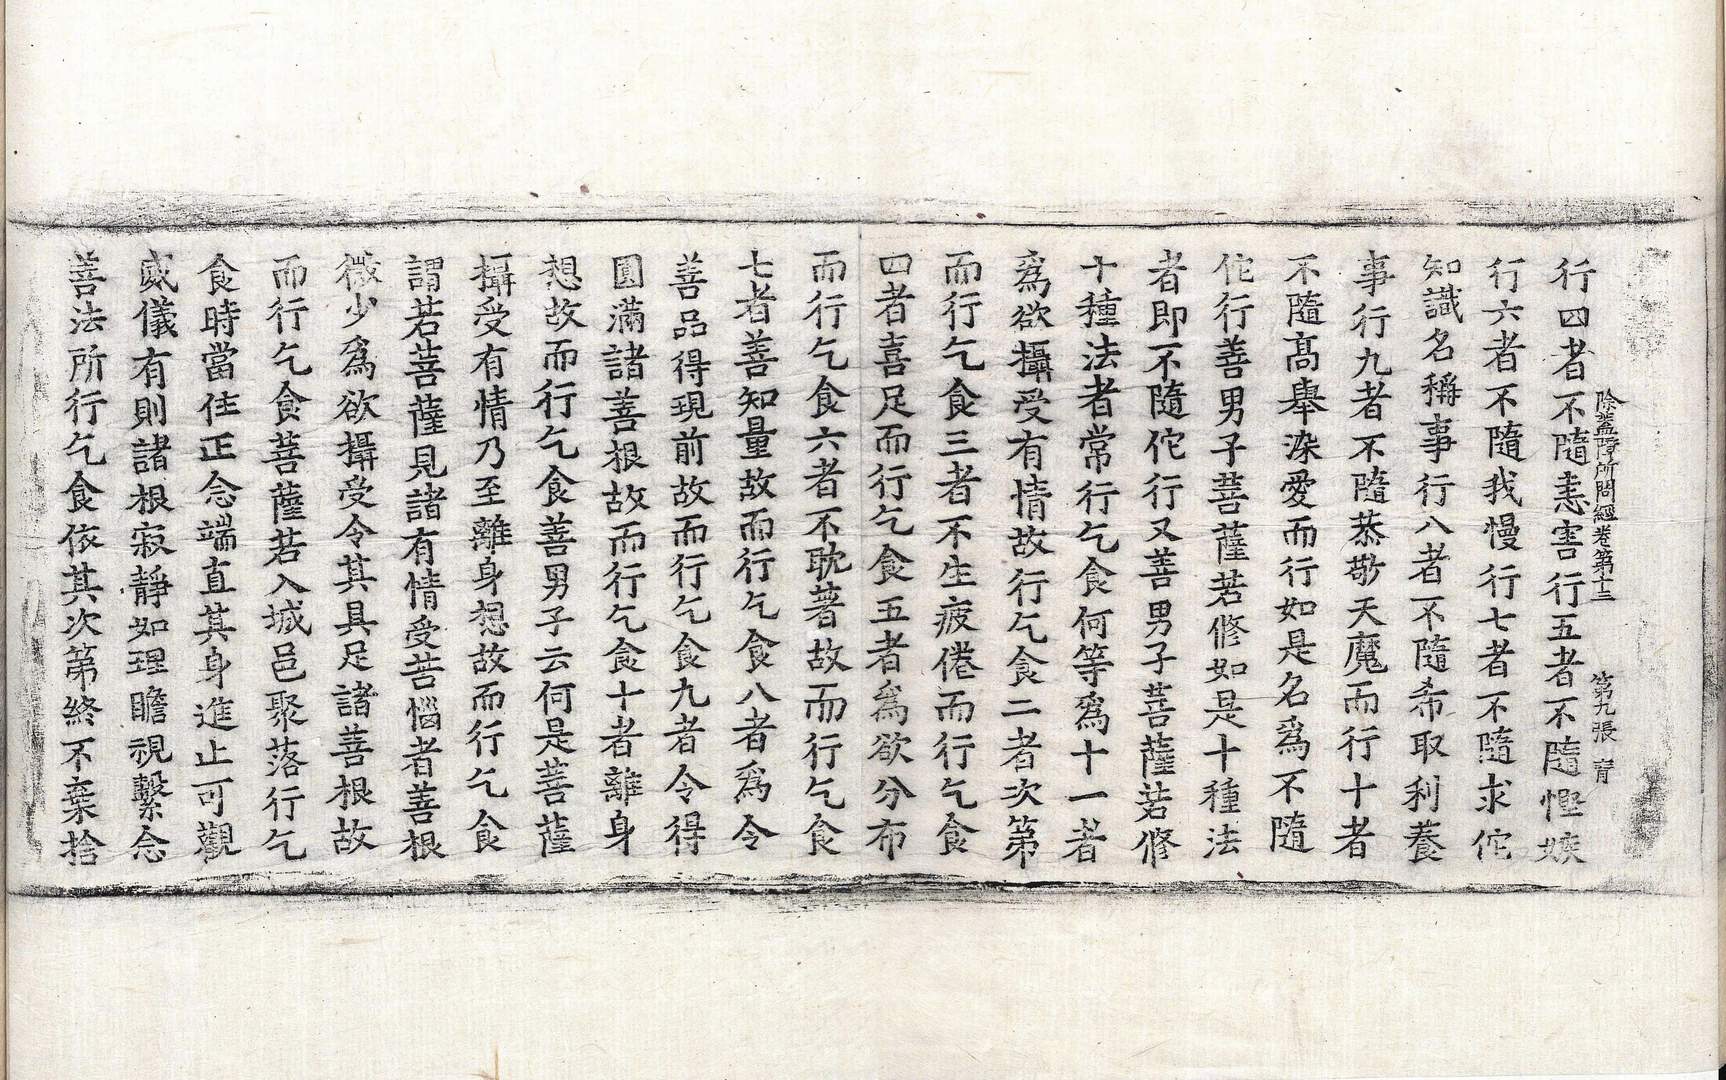 除蓋障所問經卷第十三　第九張　育
行四者不隨恚害行五者不隨慳嫉
行六者不隨我慢行七者不隨求佗
知識名稱事行八者不隨希取利養
事行九者不隨恭敬天魔而行十者
不隨髙舉染愛而行如是名爲不隨
佗行善男子菩薩若修如是十種法
者即不隨佗行又善男子菩薩若修
十種法者常行乞食何等爲十一者
爲欲攝受有情故行乞食二者次第
而行乞食三者不生疲倦而行乞食
四者喜足而行乞食五者爲欲分布
而行乞食六者不耽著故而行乞食
七者善知量故而行乞食八者爲令
善品得現前故而行乞食九者令得
圓滿諸善根故而行乞食十者離身
想故而行乞食善男子云何是菩薩
攝受有情乃至離身想故而行乞食
謂若菩薩見諸有情受苦惱者善根
微少爲欲攝受令其具足諸善根故
而行乞食菩薩若入城邑聚落行乞
食時當住正念端直其身進止可觀
威儀有則諸根寂靜如理瞻視繫念
善法所行乞食依其次第終不棄捨